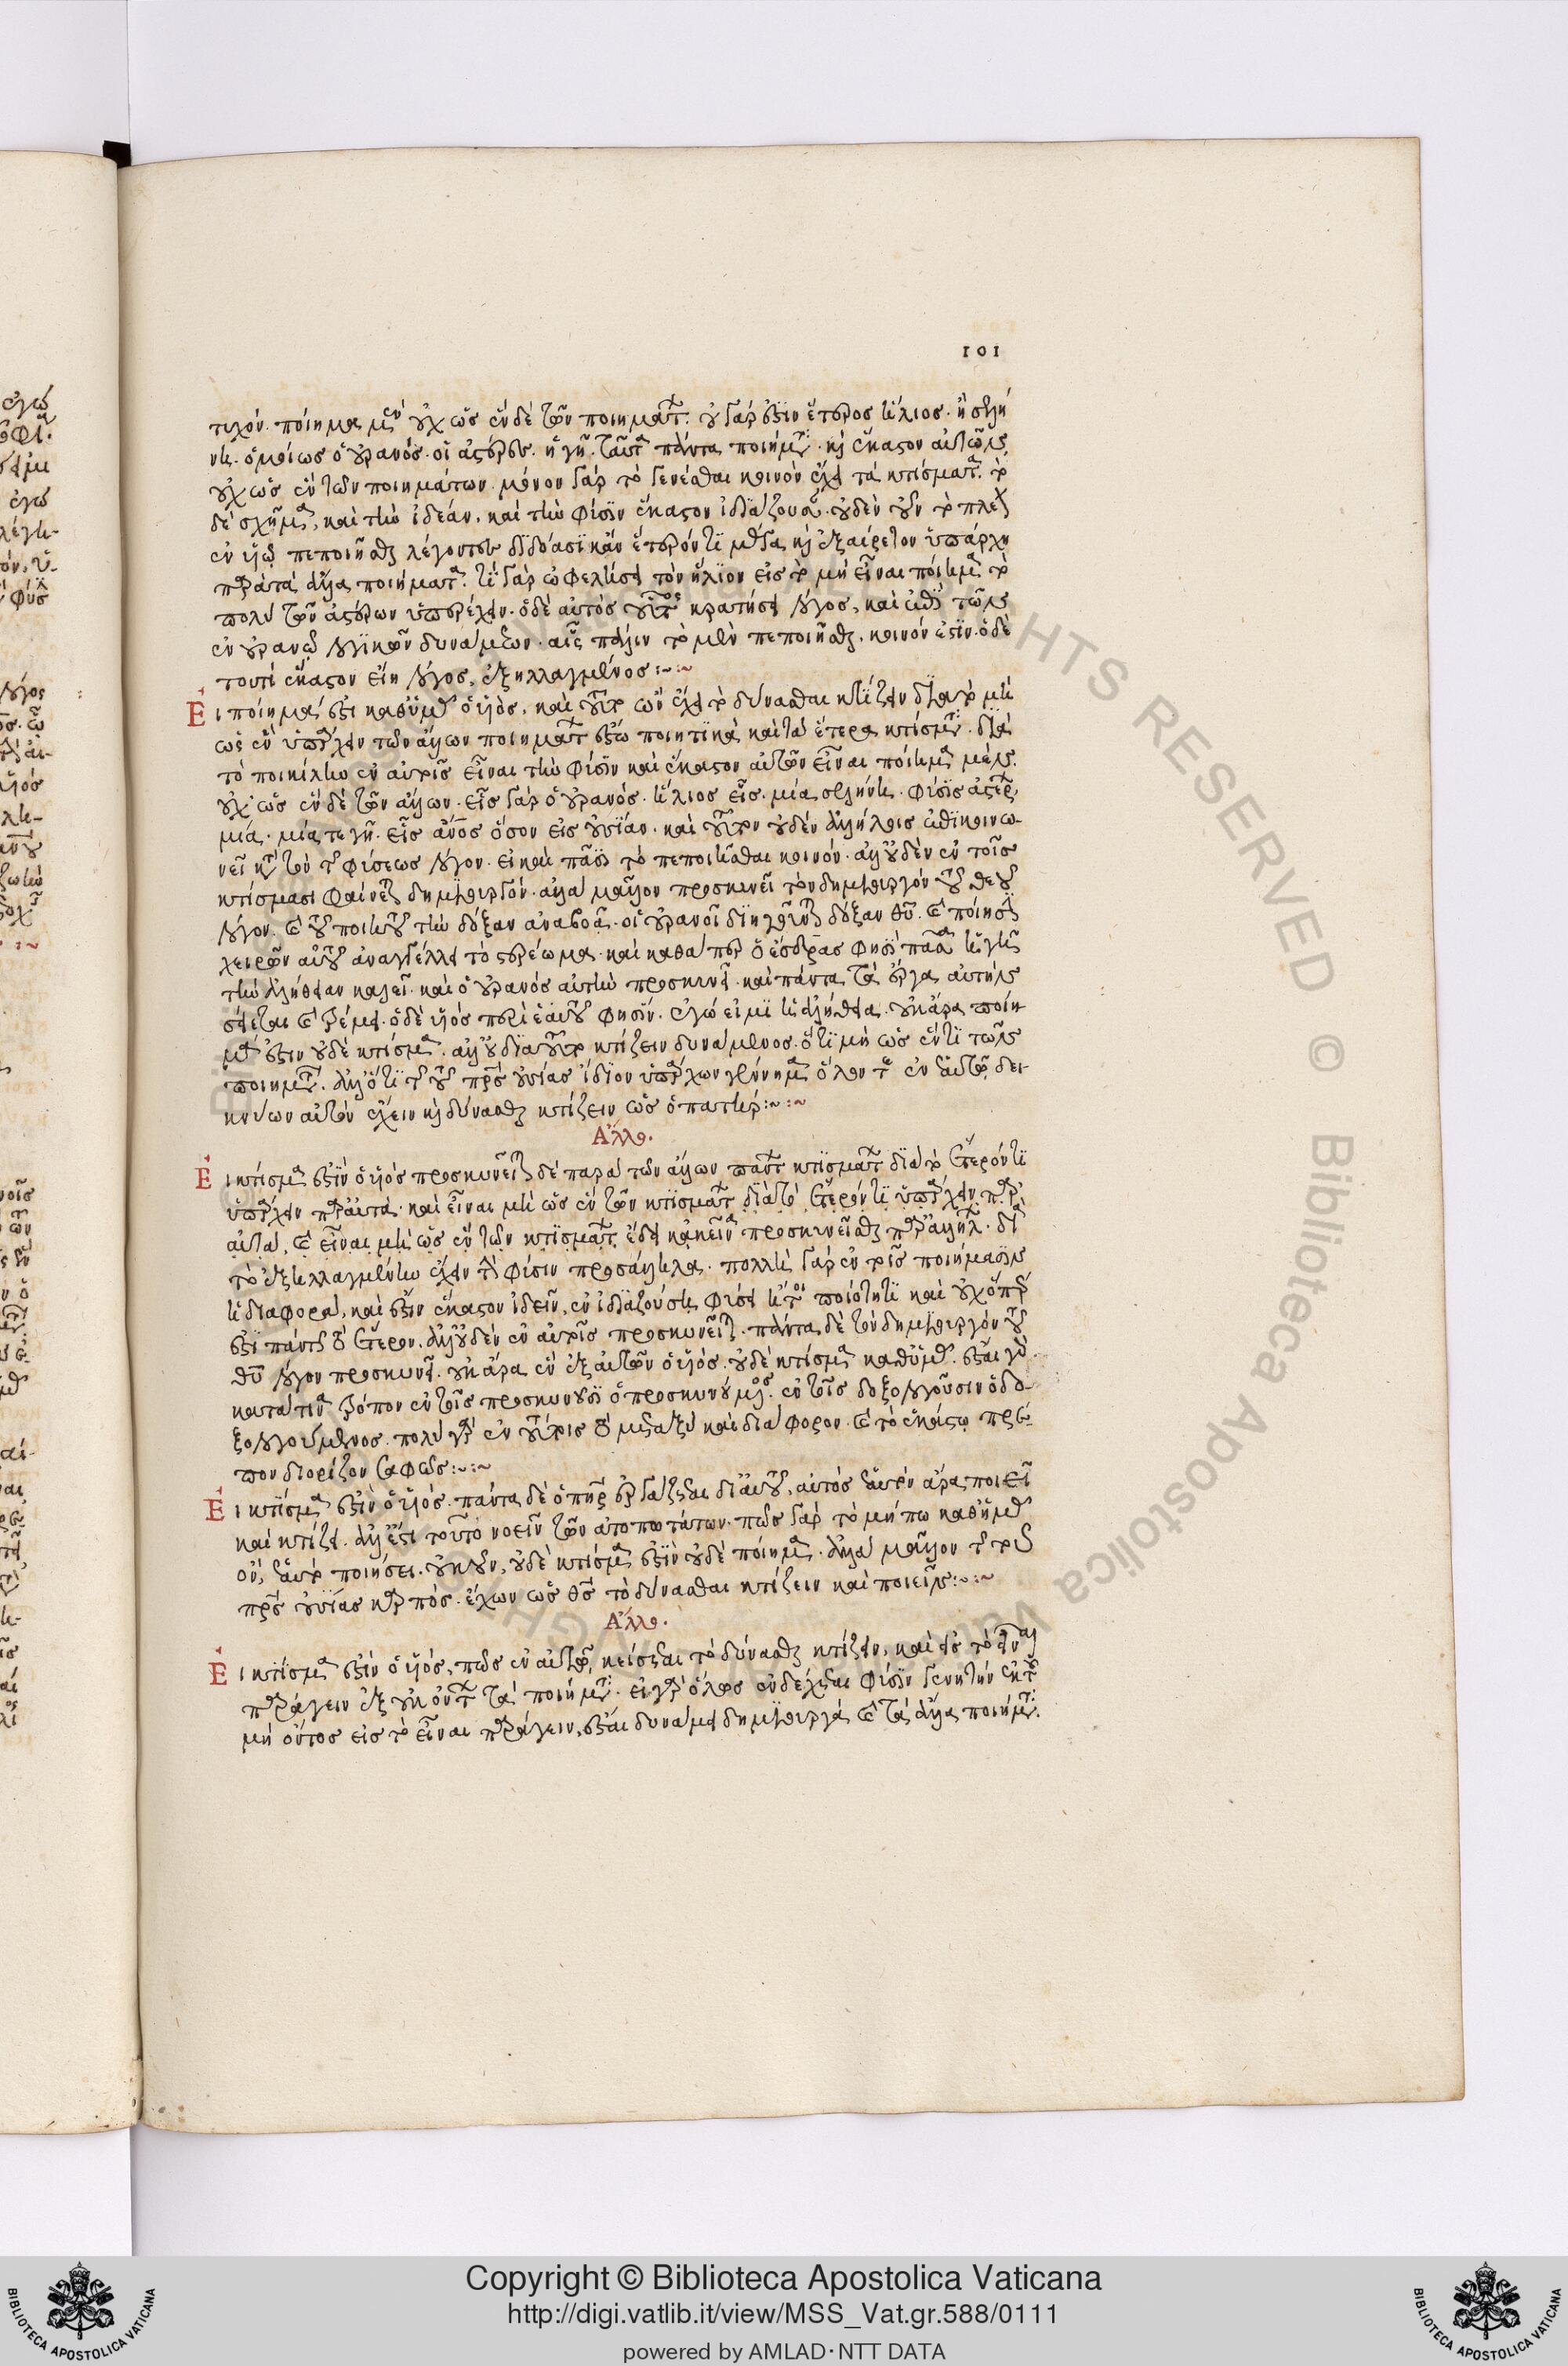 101
τυχόν. ποίημα μὲν οὐχ ὡς ἓν δὲ τῶν ποιημάτ. οὐ γάρ ἐστιν ἕτερος ἥλιος. ἢ σελή
νη. ὁμοίως ὁ οὐρανός. οἱ ἀστέρες. ἡ γῆ. ταῦτα πάντα ποιήματ. καὶ ἕκαστον αὐτῶν
οὐχ ὡς ἓν τῶν ποιημάτων. μόνον γάρ τὸ γενέσθαι κοινὸν ἔχει τὰ κτίσματα. τὸ
δὲ σχῆμα, καὶ τὴν ἰδέαν, καὶ τὴν φύσιν ἕκαστον ἰδιάζουσαν. οὐδὲν οὖν τὸ πλέον
πολὺ τῶν ἄστρων ὑπερέχειν. ὁ δὲ αὐτὸς κρατήσει λόγος, καὶ ἐπὶ τῶν
ἐν οὐρανῷ λογικῶν δυνάμεων. αἷς πάλιν τὸ μὲν πεποιῆσθαι, κοινόν ἐστιν. ὁ δὲ
τουτὶ ἕκαστον εἴη λόγος, ἐξηλλαγμένος:~~
Εἰ ποίημά ἐστι καθ' ὑμᾶς ὁ υἱὸς, καὶ τοῦτο ὢν ἔχει τὸ δύνασθαι κτίζειν διὰ τὸ μὴ
ὡς ἓν ὑπάρχειν τῶν ἄλλων ποιημάτ ἔστω ποιητικὰ καὶ τὰ ἕτερα κτίσματ. διὰ
τὸ ποικίλην ἐν αὐτοῖς εἶναι τὴν φύσιν καὶ ἕκαστον αὐτῶν εἶναι ποίημα μὲν.
οὐχ ὡς ἓν δὲ τῶν ἄλλων. εἷς γάρ ὁ οὐρανός. ἥλιος εἷς. μία σελήνη. φύσις ἀστέρων
μία. μία τε γῆ. εἷς ἄνος ὅσον εἰς οὐσίαν. καὶ τούτων οὐδὲν ἀλλήλοις ἐπικοινω-
νεῖ κατὰ τὸν τῆς φύσεως λόγον. εἰ καὶ πᾶσι τὸ πεποιῆσθαι κοινόν. ἀλλ' οὐδὲν ἐν τοῖς
κτίσμασι φαίνεται δημιουργόν. ἀλλὰ μᾶλλον προσκυνεῖ τὸν δημιουργόν τοῦ θεοῦ
λόγον. καὶ τοῦ ποιητοῦ τὴν δόξαν ἀναβοᾷ. οἱ οὐρανοὶ διηγοῦνται δόξαν θῦ. καὶ ποίησιν
χειρῶν αὐτοῦ ἀναγγέλλει τὸ στερέωμα. καὶ καθάπερ ὁ ἔσδρας φησὶ πᾶσα ἡ γῆ
τὴν ἀλήθειαν καλεῖ. καὶ ὁ οὐρανός αὐτὴν προσκυνεῖ. καὶ πάντα τὰ ἔργα αὐτὴν
σείεται καὶ τρέμει. ὁ δὲ υἱὸς περὶ ἑαυτοῦ φησὶν. ἐγώ εἰμι ἡ ἀλήθεια. οὐκ ἄρα ποίη
μά ἐστιν οὐδὲ κτίσμα. ἀλλ' οὐ διὰ τοῦτο κτίζειν δυνάμενος. ὅτι μὴ ὡς ἕν τι τῶν
ποιημάτ. ἀλλ' ὅτι τῆς τοῦ πρς οὐσίας ἴδιον ὑπάρχων γέννημα ὅλον τε ἐν ἑαυτῷ δει-
κνύων αὐτὸν ἔχειν καὶ δύνασθαι κτίζειν ὡς ὁ πατήρ:~:~
Ἄλλο.
Εἰ κτίσμα ἐστὶν ὁ υἱὸς προσκυνεῖται δὲ παρὰ τῶν ἄλλων πάντ κτισμάτ διὰ τὸ ἕτερόν τι
ὑπάρχειν παρ' αὐτά. καὶ εἶναι μὴ ὡς ἓν τῶν κτισμάτ διὰ τὸ ἕτερόν τι ὑπάρχειν παρ'
αὐτά, καὶ εἶναι μὴ ὡς ἓν τῶν κτισμάτ ἔδει κἀκεῖνα προσκυνεῖσθαι παρ' ἀλλήλ. διὰ
τὸ ἐξηλλαγμένην ἔχειν τὴν φύσιν προσάλληλα. πολλὴ γάρ ἐν τοῖς ποιήμασιν
ἡ διαφορά, καὶ ἔστιν ἕκαστον ἰδεῖν, ἐν ἰδιαζούσῃ φύσει ἤτοι ποιότητι καὶ οὐχ ὅπερ
ἐστὶ πάντως τὸ ἕτερον. ἀλλ' οὐδὲν ἐν αὐτοῖς προσκυνεῖται. πάντα δὲ τὸν δημιουργόν τοῦ
θῦ λόγον προσκυνεῖ. οὐκ ἄρα ἓν ἐξ αὐτῶν ὁ υἱὸς. οὐδὲ κτίσμα καθ' ὑμᾶς. ἔσται γὰρ
κατά τινα τρόπον ἐν τοῖς προσκυνοῦσι ὁ προσκυνούμενος. ἐν τοῖς δοξολογοῦσιν ὁ δο-
ξολογούμενος. πολὺ γὰρ ἐν τούτοις τὸ μεταξὺ καὶ διάφορον. καὶ τὸ ἑκάστῳ πρέ-
πον διορίζον σαφῶς:~:~
Εἰ κτίσμα ἐστὶν ὁ υἱὸς. πάντα δὲ ὁ πηρ ἐργάζεται δι' αὐτοῦ, αὐτὸς ἑαυτὸν ἄρα ποιεῖ
καὶ κτίζει. ἀλλ' ἔστι τοῦτο νοεῖν τῶν ἀτοπωτάτων. πῶς γάρ τὸ μήπω καθ' ὑμᾶς
ὄν, ἑαυτὸ ποιήσει. οὐκ οὖν, οὐδὲ κτίσμα ἐστὶν οὐδὲ ποίημα. ἀλλὰ μᾶλλον τῆς τοῦ
πρς οὐσίας καρπός. ἔχων ὡς θς τὸ δύνασθαι κτίζειν καὶ ποιεῖν:~:~
Ἄλλο.
Εἰ κτίσμα ἐστὶν ὁ υἱὸς, πῶς ἐν αὐτῷ κείσεται τὸ δύνασθαι κτίζειν, καὶ εἰς τὸ εἶναι
παράγειν ἐξ οὐκ ὄντ τὰ ποιήματ. εἰ γὰρ ὅλως ἐνδέχεται φύσιν γενητὴν ἐκ τοῦ
μὴ ὄντος εἰς τὸ εἶναι παράγειν, ἔσται δυνάμει δημιουργά καὶ τὰ ἄλλα ποιήματ.
Copyright © Biblioteca Apostolica Vaticana
http://digi.vatlib.it/view/MSS_Vat.gr.588/0111
powered by AMLAD·NTT DATA